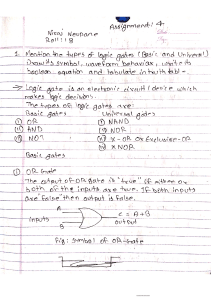 Assignment: 4
Niraj Neupane
Roll: 18
1. Mention the types of logic gates (Basic and Universal)
Draw its symbol, waveform behavior, write its
boolean equation and tabulate in truth table.
→ Logic gate is an electronic circuit / device which
makes logic decisions.
The types of logic gates are:
Basic gates Universal gates
(i) OR (i) NAND
(ii) AND (ii) NOR
(iii) NOT (iii) X-OR or Exclusive-OR
(iv) XNOR
Basic gates
(i) OR Gate
The output of OR gate is "true" if either or
both of the inputs are true. If both inputs
are false then output is false.
A
Inputs C = A+B
B output
Fig: Symbol of OR-Gate